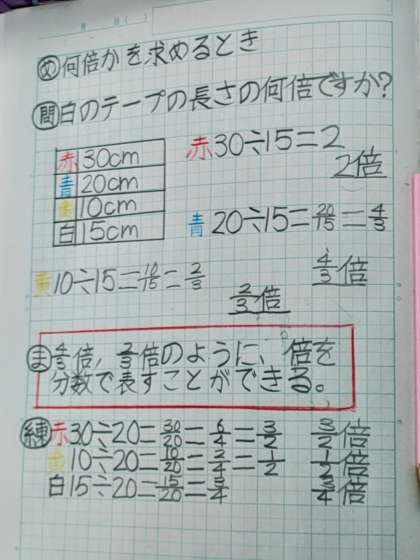 め 何倍かを求めるとき
問 白のテープの長さの何倍ですか?
赤 30cm
青 20cm
黄 10cm
白 15cm
赤 30÷15=2
2倍
青 20÷15=20/15=4/3
4/3倍
黄 10÷15=10/15=2/3
2/3倍
ま 4/3倍,2/3倍のように、倍を
分数で表すことができる。
練 赤 30÷20=30/20=6/4=3/2 3/2倍
黄 10÷20=10/20=2/4=1/2 1/2倍
白 15÷20=15/20=3/4 3/4倍